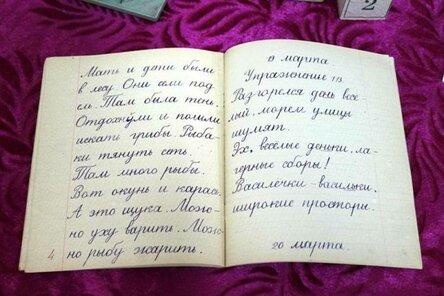 Мать и дети были
в лесу. Они сели под
ель. Там была тень.
Отдохнули и пошли
искать грибы. Рыба-
ки тянуть сеть.
Там много рыбы.
Вот окунь и карась.
А это щука. Мож-
но уху варить. Мож-
но рыбу жарить.
4
19 марта
Упражнение 113.
Разгорелся день весе
лый, морем улицы
шумят.
Эх, весёлые деньки, ла-
герные сборы!
Василечки-васильки,
широкие простори.
20 марта
2